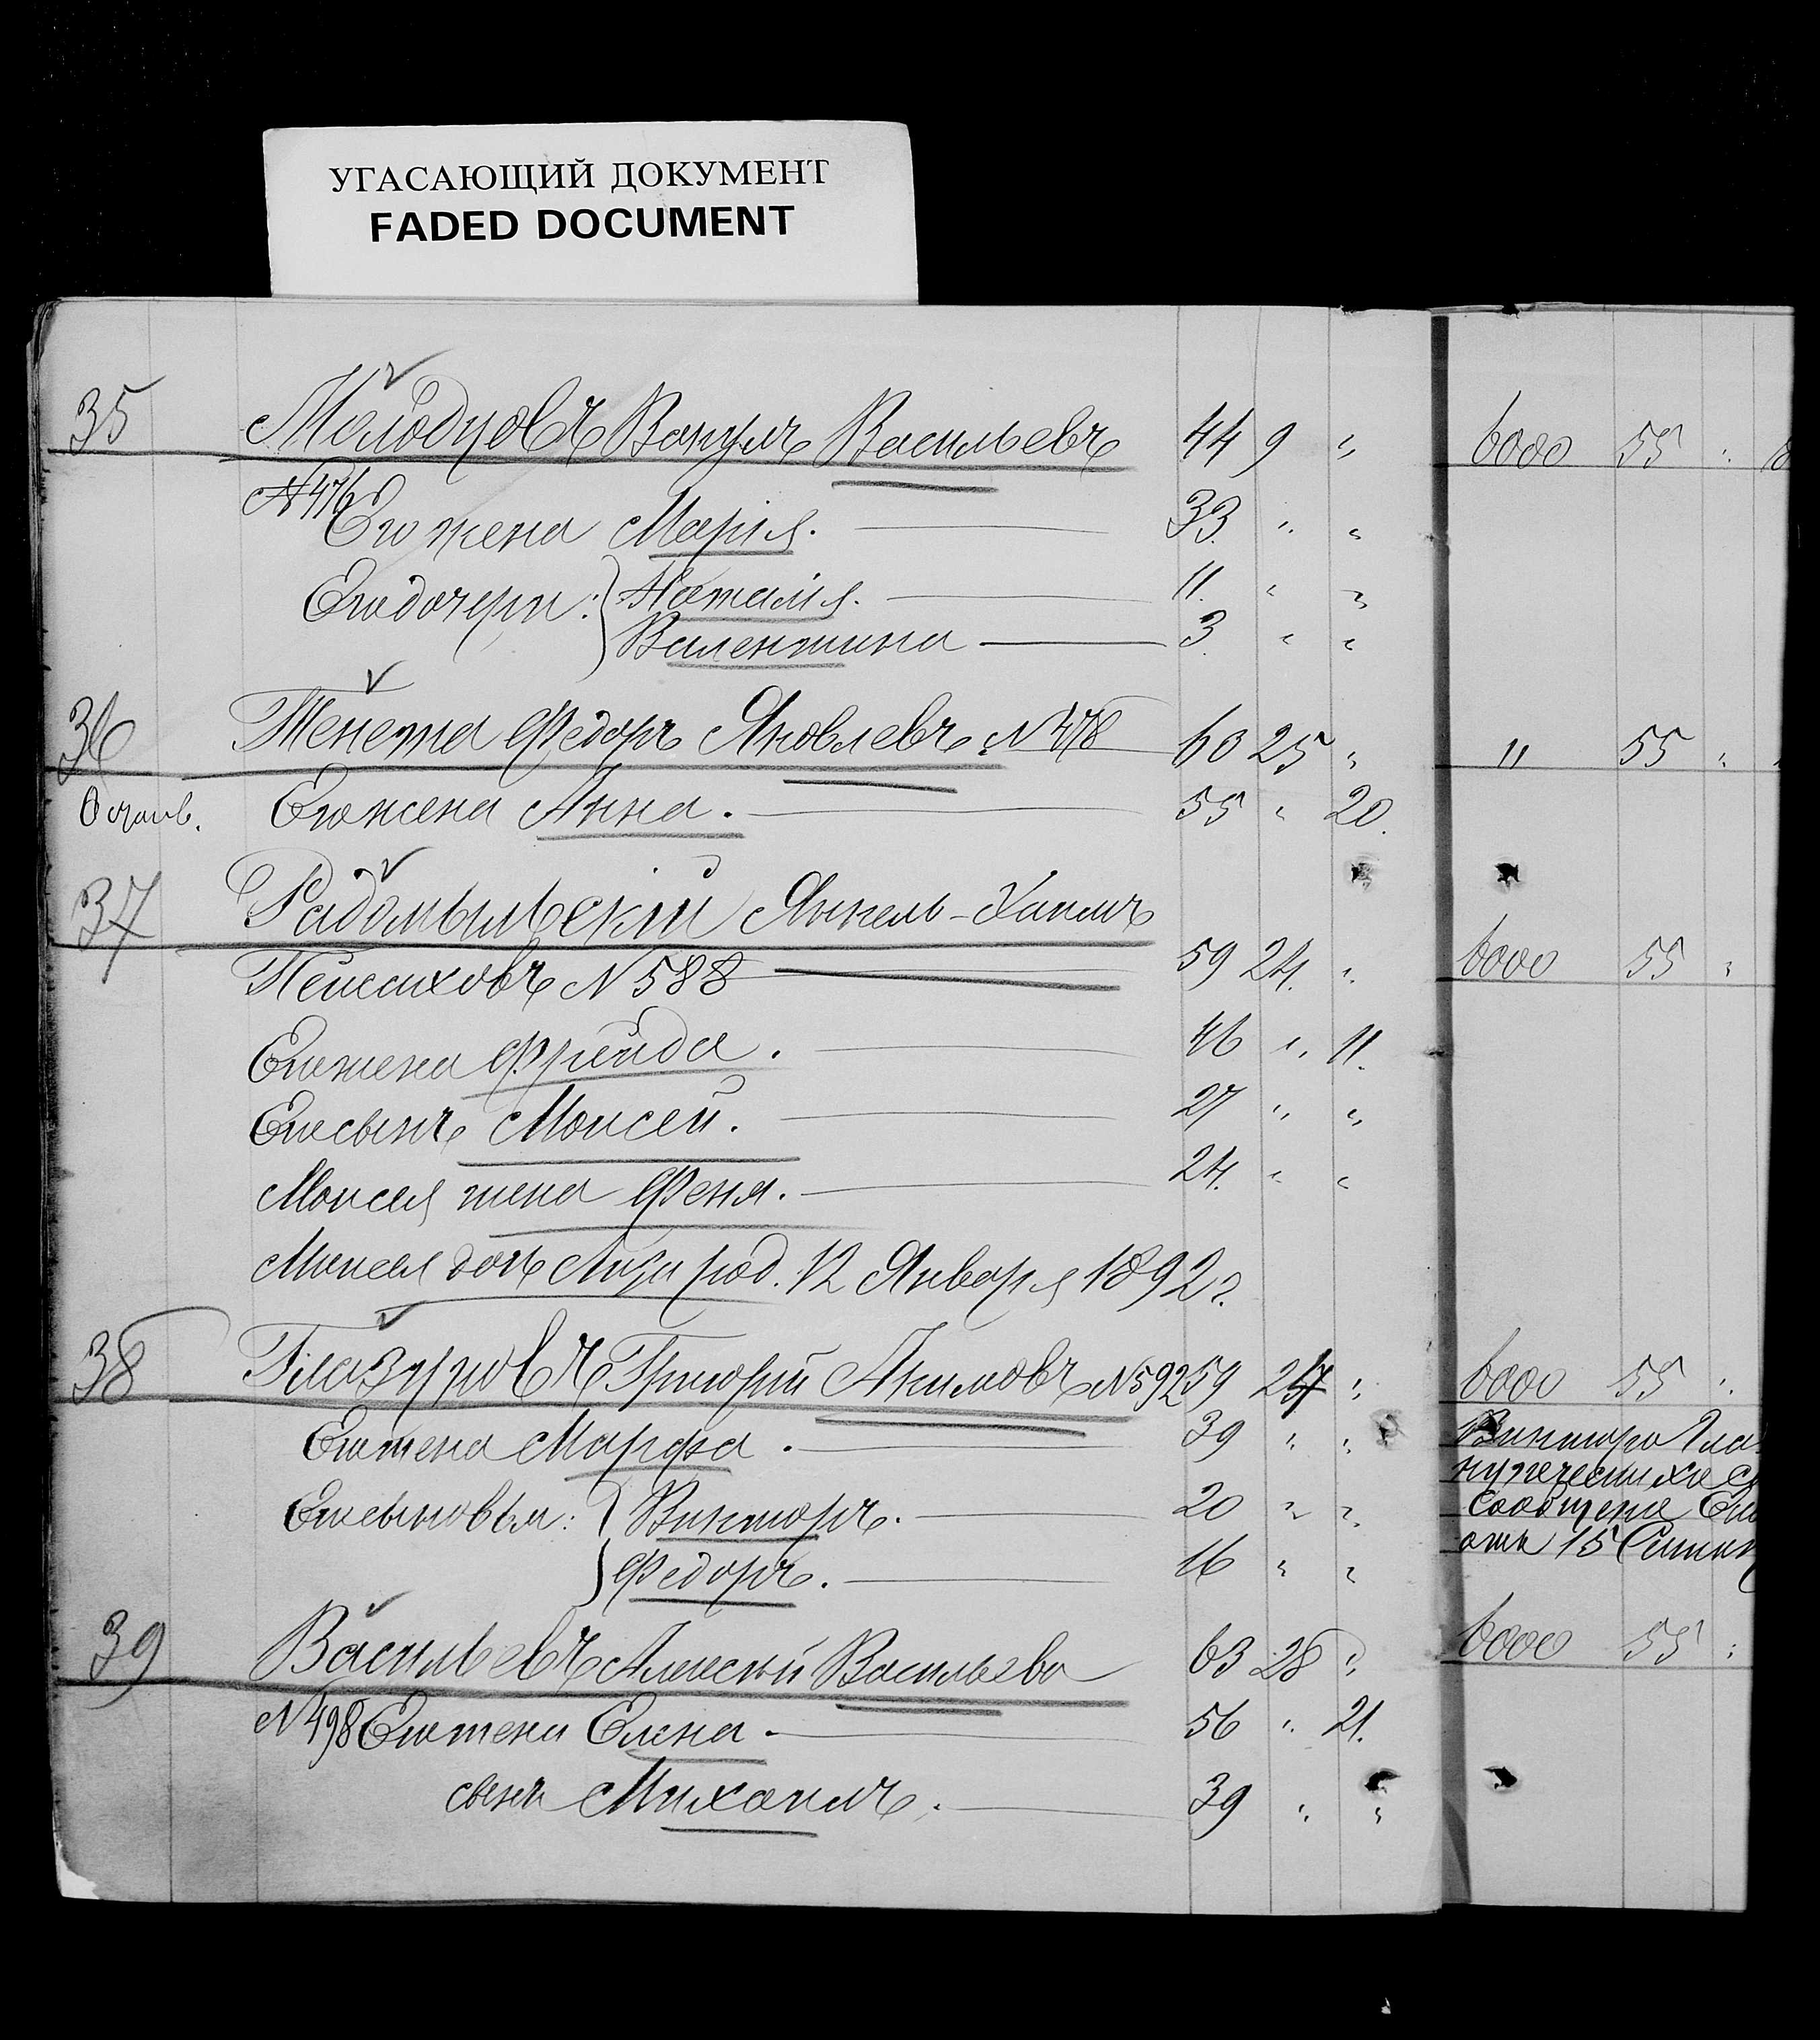 УГАСАЮЩИЙ ДОКУМЕНТ
FADED DOCUMENT
35 Молодцовъ Вакулъ Васильевъ 44 9 " 6000 55 "
№476 Его жена Марія. 33. " "
Его дочери: Наталія. 11. " "
Валентина 3. " "
36 Тенетка Федоръ Яковлевъ №478 60 25 " " 55 "
Его жена Анна. 55 " 20.
37 Радомысльскій Янкель-Хаимъ
Пейсиховъ №588 59 24. " 6000 55 "
Его жена Фрейда. 46 " 11.
Его сынъ Моисей. 27 " "
Моисея жена Феня. 24. " "
Моисея дочь Лиза род. 12 Января 1892 г.
38 Глазуновъ Григорій Акимовъ №592 59 24 " 6000 55 "
Его жена Марфа. 39 " "
Его сыновья: Викторъ. 20 " "
Федоръ. 16 " "
Викторъ Гла
купеческихъ
Сообщена
отъ 15
39 Васильевъ Алексѣй Васильевъ 63 28 " 6000 55 "
№498 Его жена Елена. 56 " 21.
сынъ Михаилъ. 39 " "